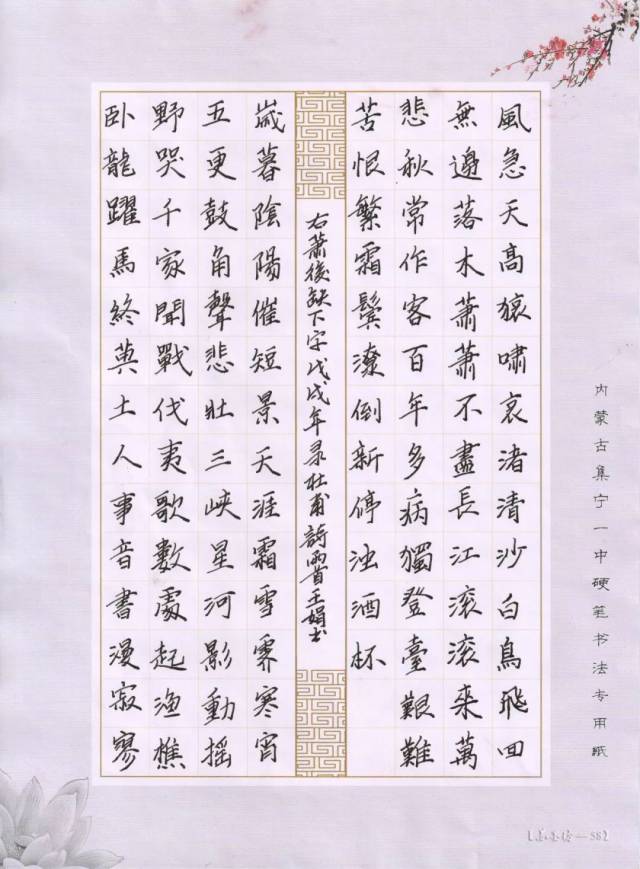 風急天高猿嘯哀渚清沙白鳥飛回
無邊落木蕭蕭不盡長江滚滚来萬
悲秋常作客百年多病獨登臺艱難
苦恨繁霜鬢潦倒新停浊酒杯
右蕭後缺下字戊戌年录杜甫詩兩首王娟书
歲暮陰陽催短景天涯霜雪霽寒宵
五更鼓角聲悲壯三峽星河影動摇
野哭千家聞戰伐夷歌數處起渔樵
卧龍躍馬終黄土人事音書漫寂寥
内蒙古集宁一中硬笔书法专用纸
58